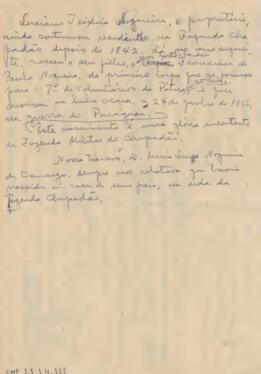 Luciano Teixeira Nogueira, o proprietário,
ainda continuou residindo na Fazenda Cha-
padão depois de 1842. Lá, no ano seguin-
te, nasceu seu filho, Francisco de
Paula Nogueira, do primeiro corpo que se formou
para o 7º de Voluntários da Patria e que
morreu na luta, a 24 de junho de 1866,
na guerra do Paraguai.
(Este nascimento é uma glória
da Fazenda Militar do Chapadão.
Nossa tia-avó, D. Maria Luiza Nogueira
de Camargo, sempre nos relatava que havia
nascido em casa de seus pais, na sede da
Fazenda Chapadão,
CMP 1.1.1.4.111